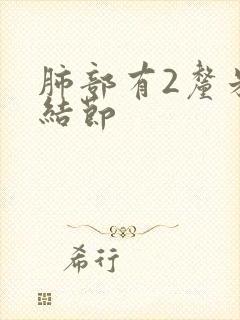 肺部有2釐米
結節
希行